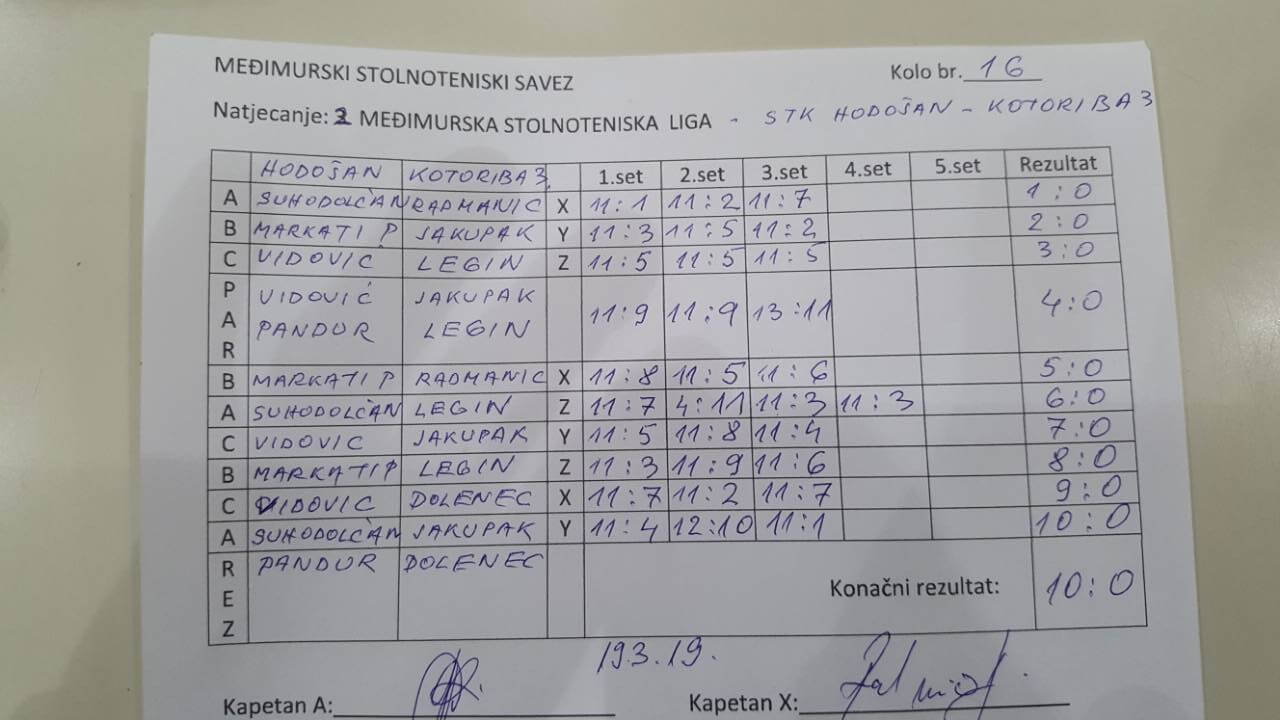 MEĐIMURSKI STOLNOTENISKI SAVEZ Kolo br. 16
Natjecanje: 2 MEĐIMURSKA STOLNOTENISKA LIGA - STK HODOŠAN - KOTORIBA 3
HODOŠAN KOTORIBA 3 1.set 2.set 3.set 4.set 5.set Rezultat
A SUHODOLČAN RADMANIĆ X 11:1 11:2 11:7 1:0
B MARKATI P JAKUPAK Y 11:3 11:5 11:2 2:0
C VIDOVIĆ LEGIN Z 11:5 11:5 11:5 3:0
PAR VIDOVIĆ JAKUPAK 11:9 11:9 13:11 4:0
PANDUR LEGIN
B MARKATI P RADMANIC X 11:8 11:5 11:6 5:0
A SUHODOLČAN LEGIN Z 11:7 4:11 11:3 11:3 6:0
C VIDOVIC JAKUPAK Y 11:5 11:8 11:4 7:0
B MARKATI P LEGIN Z 11:3 11:9 11:6 8:0
C VIDOVIC DOLENEC X 11:7 11:2 11:7 9:0
A SUHODOLČAN JAKUPAK Y 11:4 12:10 11:1 10:0
REZ PANDUR DOLENEC Konačni rezultat: 10:0
19.3.19.
Kapetan A: Kapetan X: